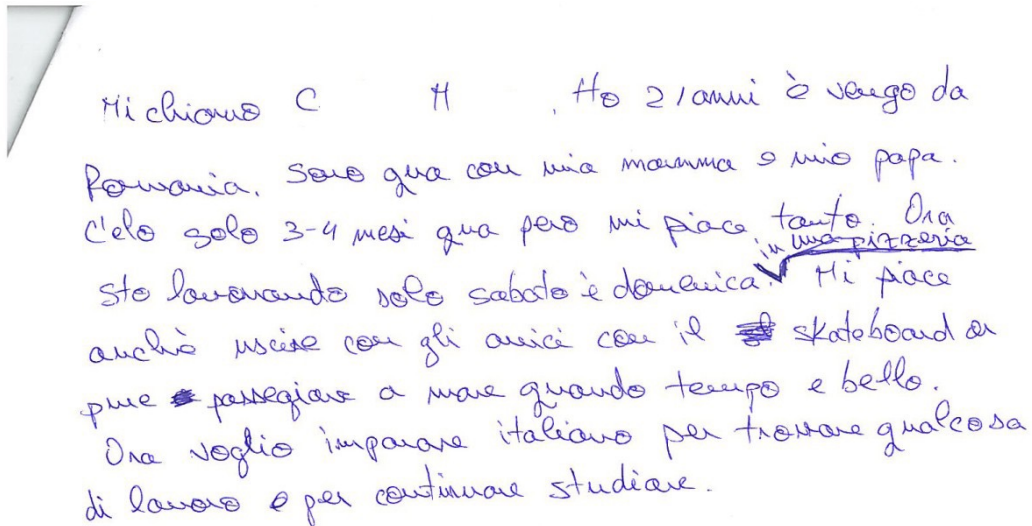 Mi chiamo C H. Ho 21 anni è vengo da
Romania. Sono qua con mia mamma e mio papa.
C'elo solo 3-4 mesi qua pero mi piace tanto. Ora
sto lavorando solo sabato è domenica in una pizzeria. Mi piace
anchè uscire con gli amici con il skateboard o
pure passegiare a mare quando tempo e bello.
Ora voglio imparare italiano per trovare qualcosa
di lavoro e per continuare studiare.